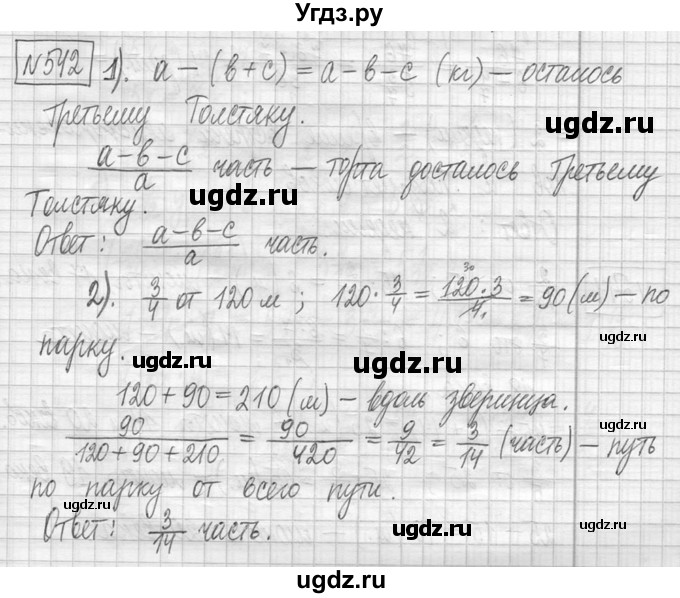 Угдз.ру
№542 1). a – (в + с) = a – в – с (кг) – осталось
Третьему Толстяку.
ugdz.ru
a – в – с / a часть – торта досталось Третьему
ugdz.ru ugdz.ru
Толстяку.
Ответ: a – в – с / a часть.
2). 3/4 от 120 м; 120 · 3/4 = 120 · 3 / 4 = 90 (м) – по
30
ugdz.ru
парку.
ugdz.ru ugdz.ru
120 + 90 = 210 (м) – вдоль зверинца.
90 / 120 + 90 + 210 = 90 / 420 = 9/42 = 3/14 (часть) – путь
по парку от всего пути.
ugdz.ru ugdz.ru
Ответ: 3/14 часть.
ugdz.ru
ugdz.ru
ugdz.ru